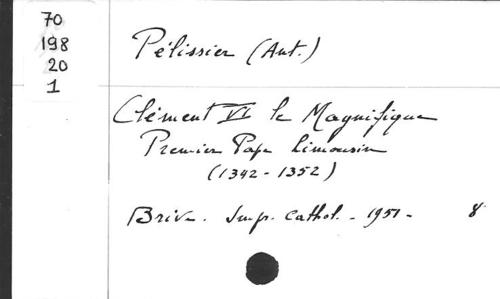 70
198
20
1
Pélissier (Ant.)
Clément VI le Magnifique
Premier Pape Limousin
(1342-1352)
Brive. Imp. Cathol. - 1951 - 8